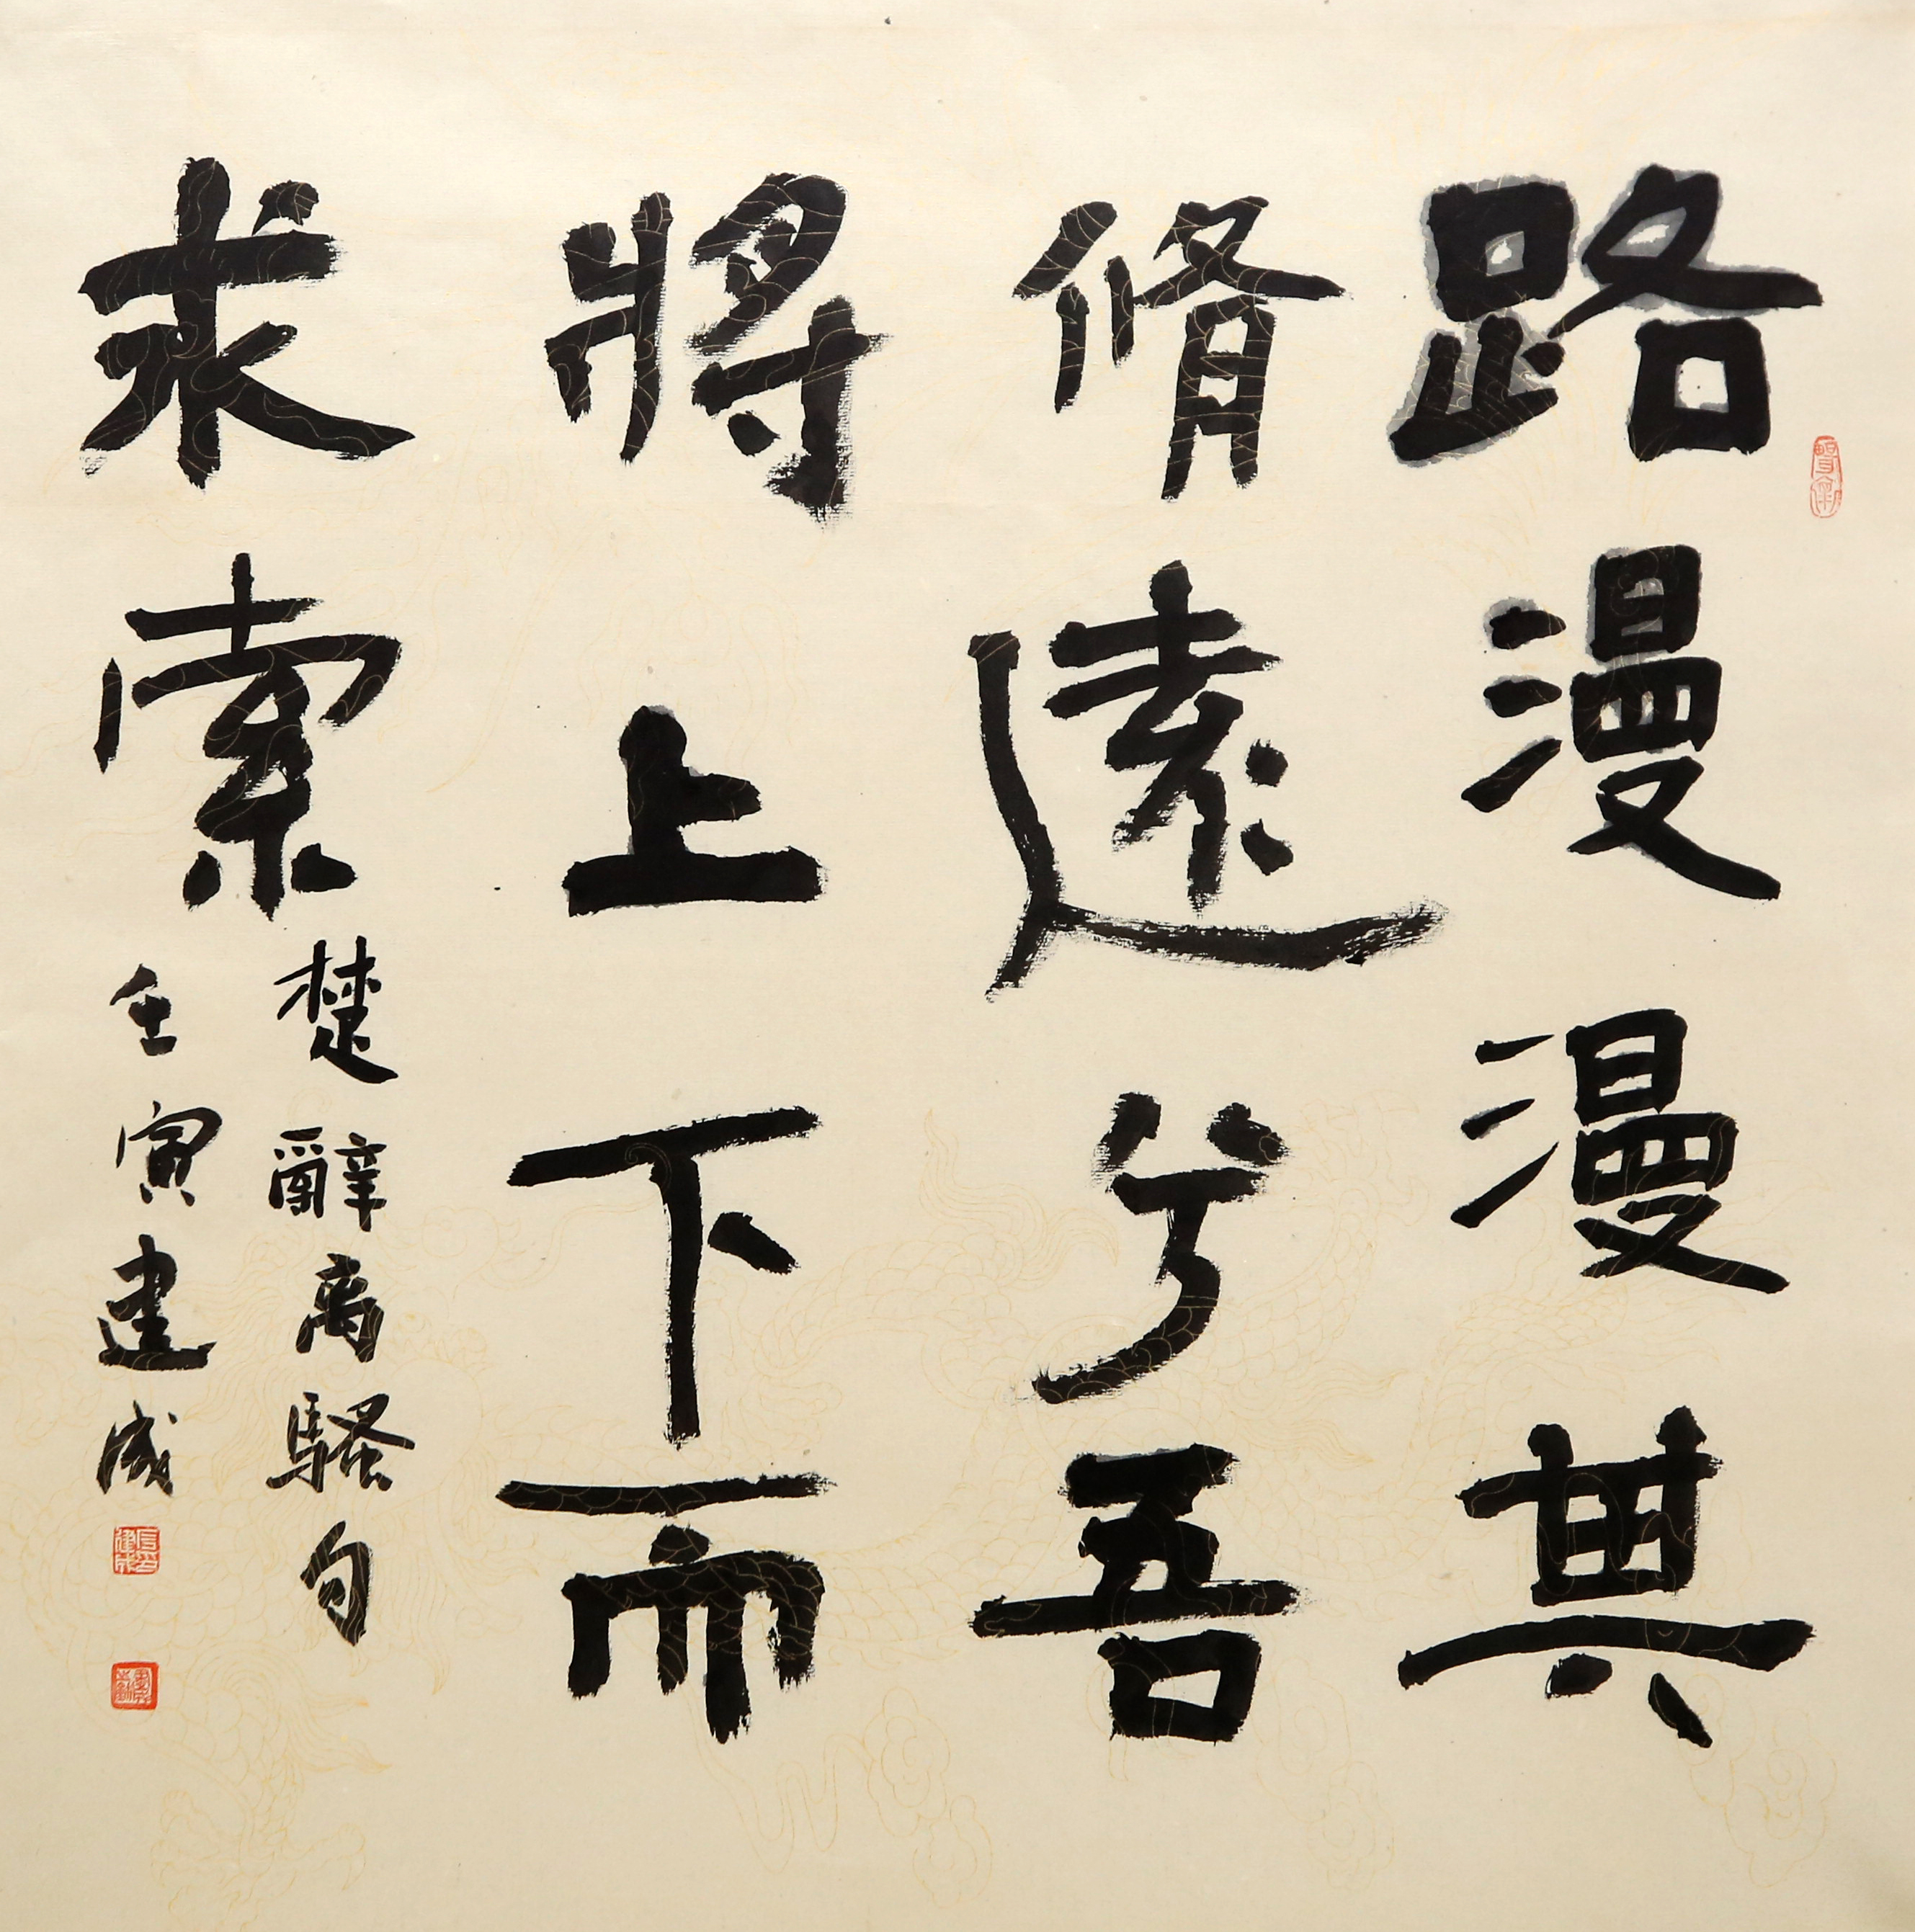 路漫漫其
脩遠兮吾
將上下而
求索
楚辭离騷句
壬寅建成